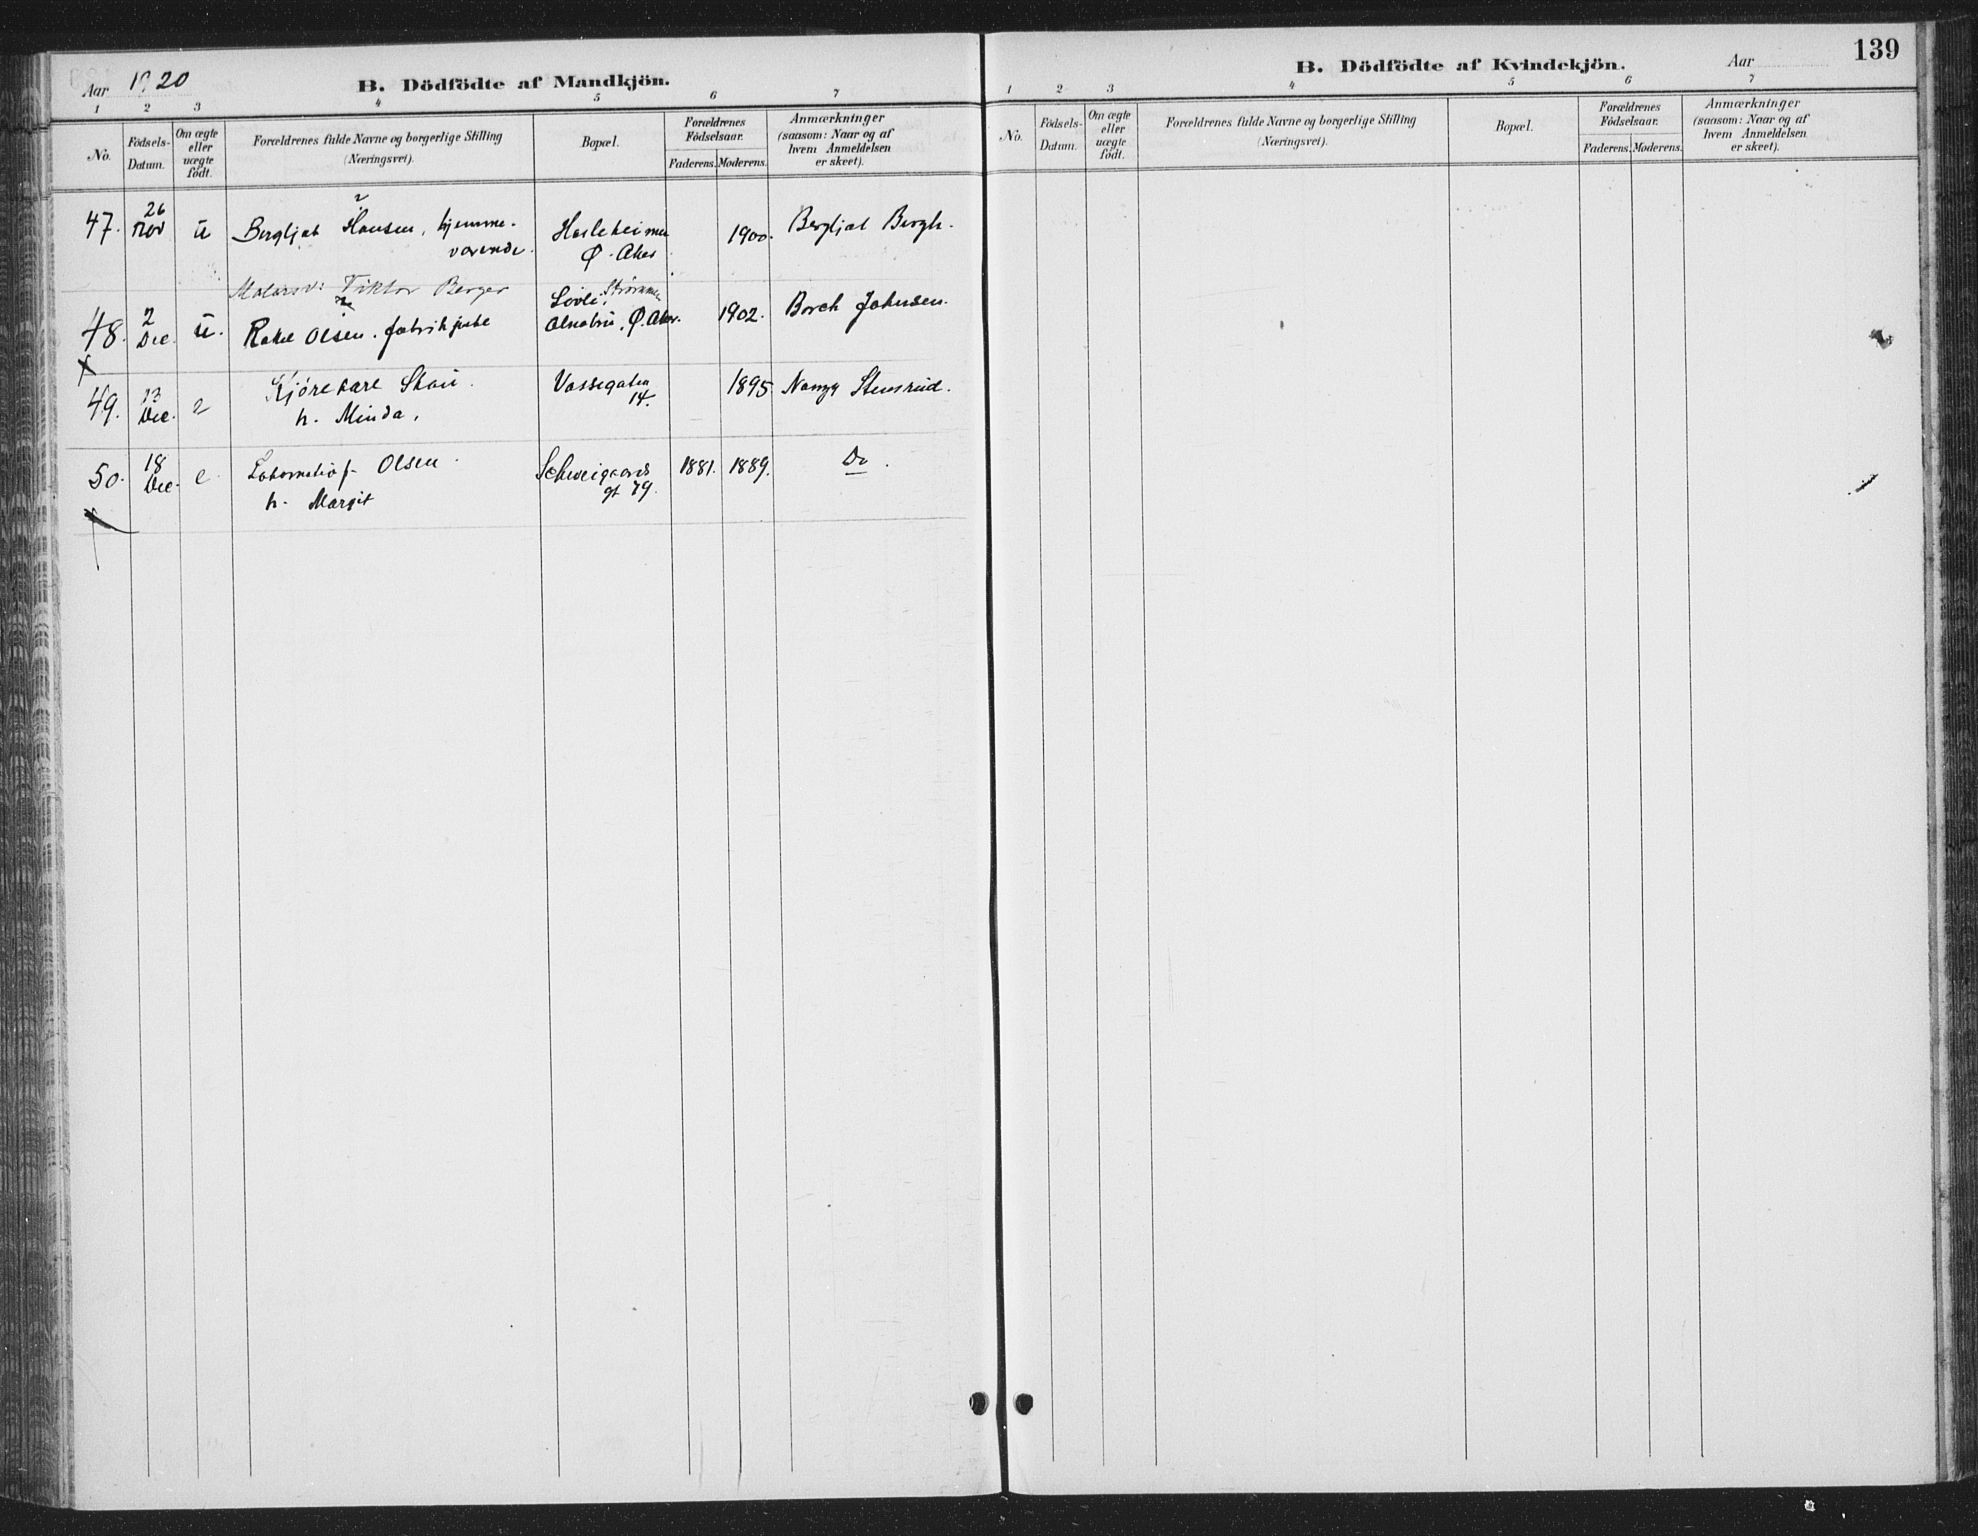 Aar 1920
B. Dödfödte af Mandkjön.
1 2 3 4 5 6 7
No.
Födsels-
Datum.
Om ægte
eller
uægte
födt.
Forældrenes fulde Navne og borgerlige Stilling
(Næringsvei).
Bopæl.
Forældrenes
Födselsaar.
Faderens. Moderens.
Anmærkninger
(saasom: Naar og af
hvem Anmeldelsen
er skeet).
47. 26 Nov u Bergljot Hansen, hjemme-
værende.
Hasleheimen
Ø. Aker
1900. Bergljot Bergh.
Berger
48. 2 Dec. u. Rakel Olsen. fabrikpike
Løvli, Strømmen
Alnabru, Ø. Aker. 1902. Borch Johnsen.
49. 13 Dec. Kjørekarl Skau.
h. Minda.
Vossegaten
14.
1895 Nanny Stensrud.
50. 18 Dec. e. Lokomotivf. Olsen.
h. Margit
Schweigaards
gt 79.
1881. 1889. Do.
139
B. Dödfödte af Kvindekjön.
Aar
1 2 3 4 5 6 7
No.
Födsels-
Datum.
Om ægte
eller
uægte
födt.
Forældrenes fulde Navne og borgerlige Stilling
(Næringsvei).
Bopæl.
Forældrenes
Födselsaar.
Faderens. Moderens.
Anmærkninger
(saasom: Naar og af
hvem Anmeldelsen
er skeet).